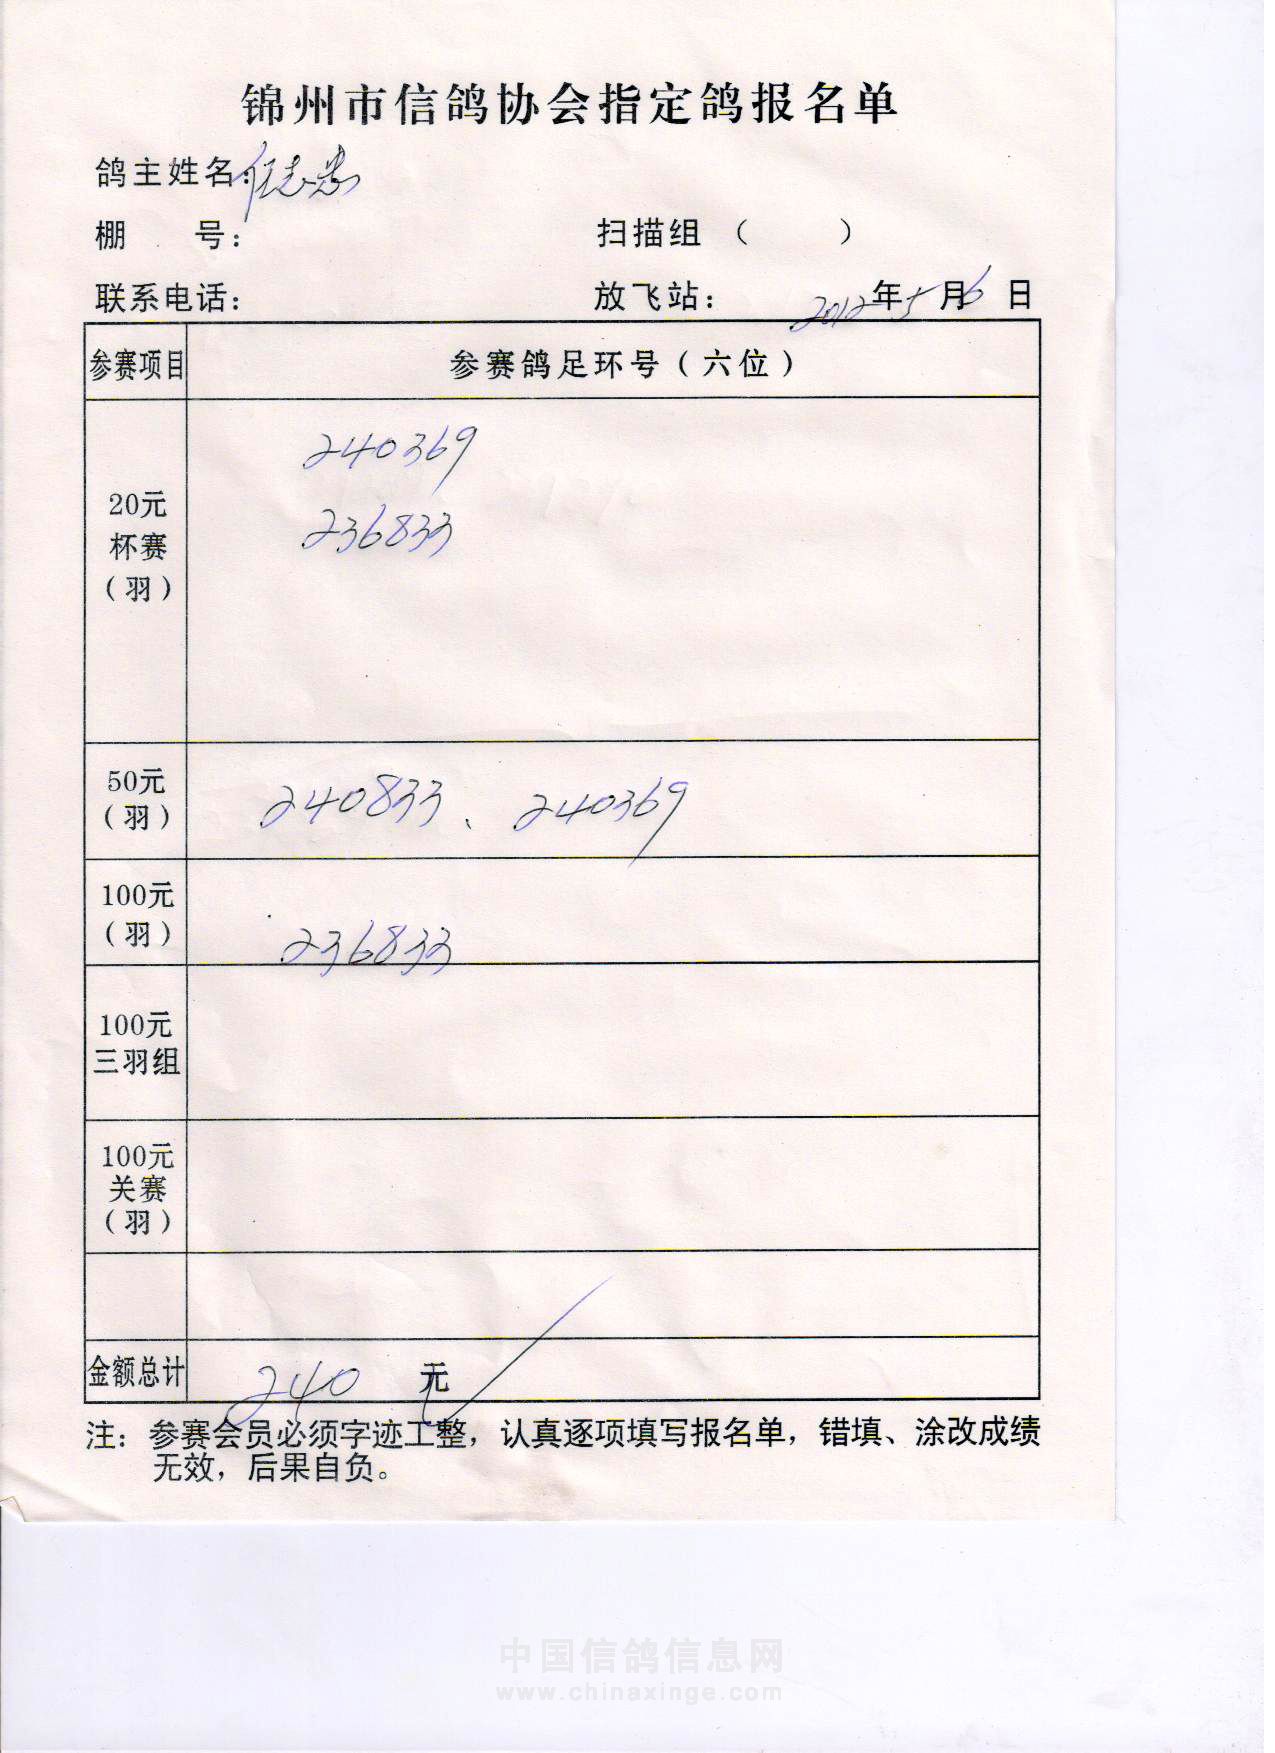 锦州市信鸽协会指定鸽报名单
鸽主姓名：任志忠
棚 号： 扫描组（ ）
联系电话： 放飞站： 2012年5月6日
参赛项目 参赛鸽足环号（六位）
20元
杯赛
（羽）
240369
236833
50元
（羽）
240833、240369
100元
（羽）
236833
100元
三羽组
100元
关赛
（羽）
金额总计 240 元
注：参赛会员必须字迹工整，认真逐项填写报名单，错填、涂改成绩
无效，后果自负。
中国信鸽信息网
www.chinaxinge.com